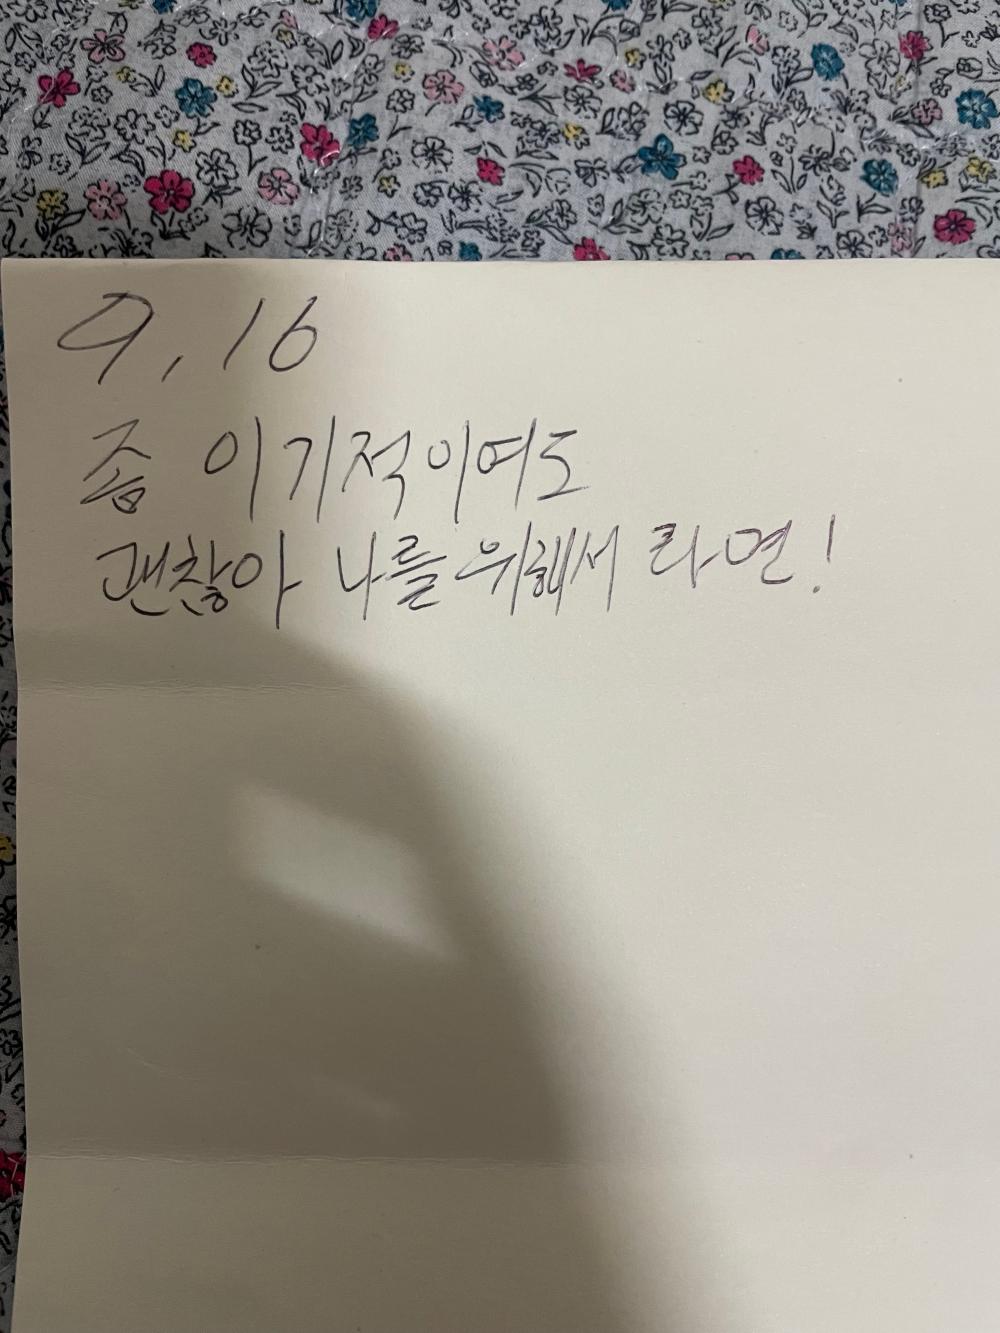 9, 16
좀 이기적이여도
괜찮아 나를 위해서 라면!